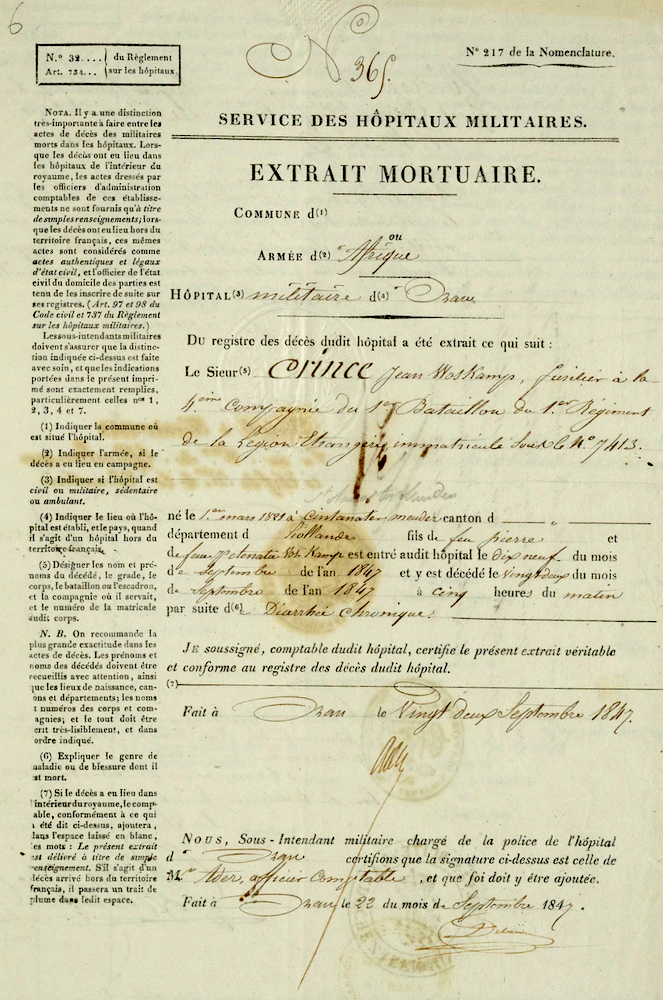 6
N.º 32.... du Règlement
Art. 734... sur les hôpitaux.
Nº 365.
Nº 217 de la Nomenclature.
SERVICE DES HÔPITAUX MILITAIRES.
EXTRAIT MORTUAIRE.
COMMUNE d(1)
ou
ARMÉE d(2) Afrique
HÔPITAL(3) militaire d(4) Oran
Du registre des décès dudit hôpital a été extrait ce qui suit :
Le Sieur(5) Prince Jean Voskamp, fusilier à la
4eme Compagnie du 1er Bataillon du 1er Régiment
de la Légion Etrangère immatriculé sous le Nº 7413.
né le 1.er mars 1821 à canton d "
département d Hollande fils de feu pierre et
de feue petenatie Vos Kamp est entré audit hôpital le dix neuf du mois
de Septembre de l'an 1847 et y est décédé le vingt deux du mois
de Septembre de l'an 1847 à cinq heures du matin
par suite d(6) Diarrhée Chronique.
JE soussigné, comptable dudit hôpital, certifie le présent extrait véritable
et conforme au registre des décès dudit hôpital.
(7)
Fait à Oran le Vingt deux Septembre 1847.
NOUS, Sous-Intendant militaire chargé de la police de l'hôpital
d Oran certifions que la signature ci-dessus est celle de
M. Ader, officier Comptable, et que foi doit y être ajoutée.
Fait à Oran le 22 du mois de Septembre 1847.
NOTA. Il y a une distinction
très-importante à faire entre les
actes de décès des militaires
morts dans les hôpitaux. Lors-
que les décès ont eu lieu dans
les hôpitaux de l'intérieur du
royaume, les actes dressés par
les officiers d'administration
comptables de ces établisse-
ments ne sont fournis qu'à titre
de simples renseignements; lors-
que les décès ont eu lieu hors du
territoire français, ces mêmes
actes sont considérés comme
actes authentiques et légaux
d'état civil, et l'officier de l'état
civil du domicile des parties est
tenu de les inscrire de suite sur
ses registres. (Art. 97 et 98 du
Code civil et 737 du Règlement
sur les hôpitaux militaires.)
Les sous-intendants militaires
doivent s'assurer que la distinc-
tion indiquée ci-dessus est faite
avec soin, et que les indications
portées dans le présent impri-
mé sont exactement remplies,
particulièrement celles nos 1,
2, 3, 4 et 7.
(1) Indiquer la commune où
est situé l'hôpital.
(2) Indiquer l'armée, si le
décès a eu lieu en campagne.
(3) Indiquer si l'hôpital est
civil ou militaire, sédentaire
ou ambulant.
(4) Indiquer le lieu où l'hô-
pital est établi, et le pays, quand
il s'agit d'un hôpital hors du
territoire français.
(5) Désigner les nom et pré-
noms du décédé, le grade, le
corps, le bataillon ou l'escadron,
et la compagnie où il servait,
et le numéro de la matricule
dudit corps.
N. B. On recommande la
plus grande exactitude dans les
actes de décès. Les prénoms et
noms des décédés doivent être
recueillis avec attention, ainsi
que les lieux de naissance, can-
tons et départements; les noms
et numéros des corps et com-
pagnies; et le tout doit être
écrit très-lisiblement, et dans
ordre indiqué.
(6) Expliquer le genre de
maladie ou de blessure dont il
est mort.
(7) Si le décès a eu lieu dans
l'intérieur du royaume, le comp-
table, conformément à ce qui
a été dit ci-dessus, ajoutera,
dans l'espace laissé en blanc,
les mots : Le présent extrait
est délivré à titre de simple
renseignement. S'il s'agit d'un
décès arrivé hors du territoire
français, il passera un trait de
plume dans ledit espace.